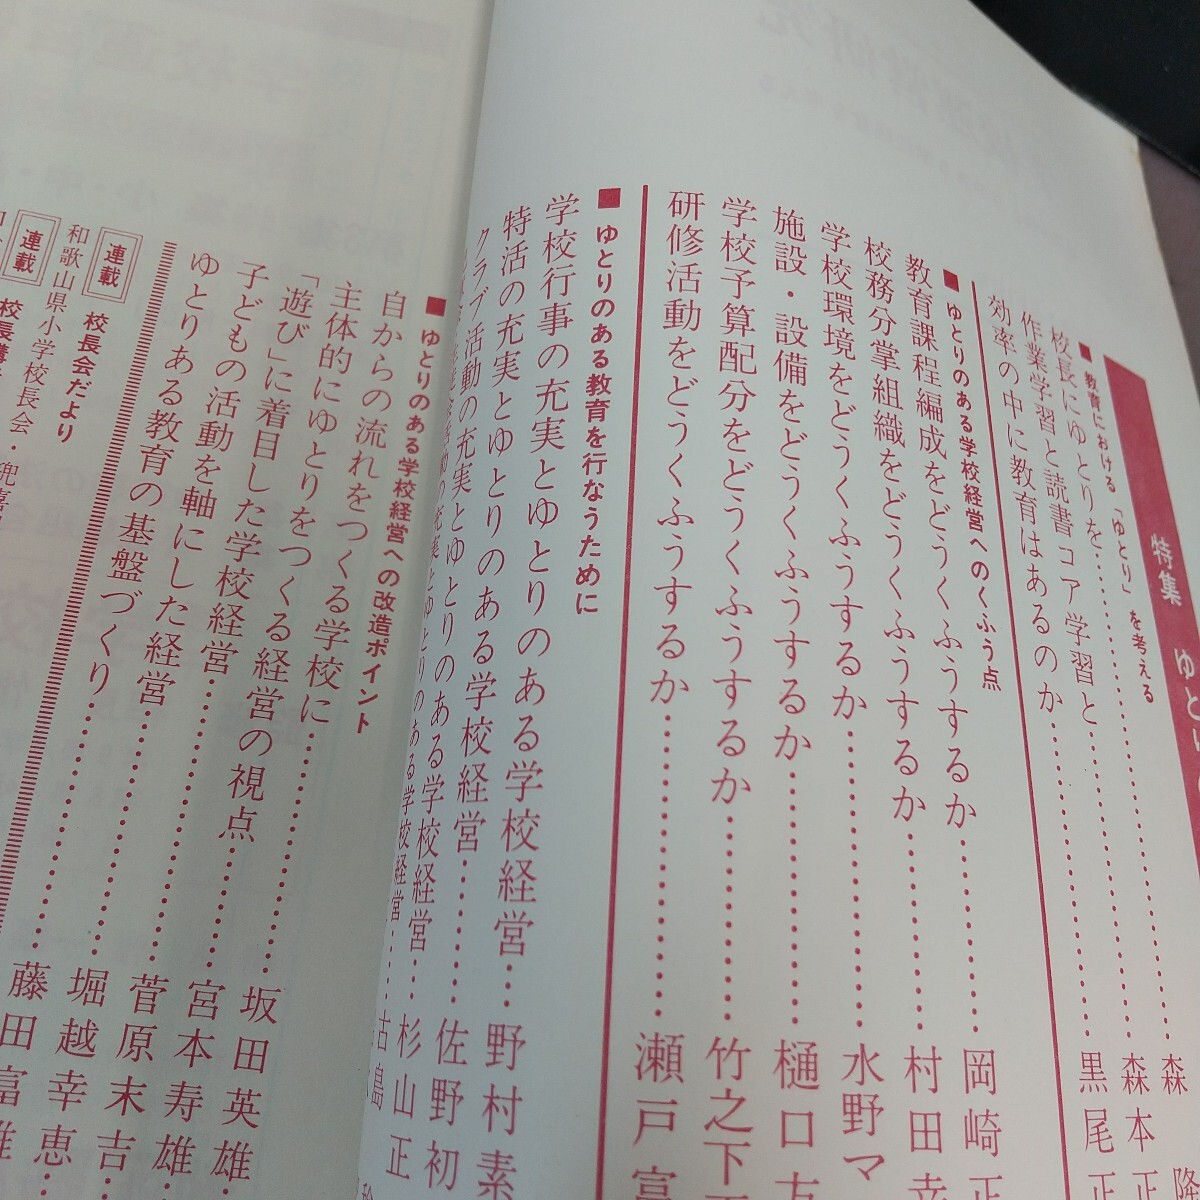 特集 ゆとり
■ 教育における「ゆとり」を考える
校長にゆとりを…………森 隆
作業学習と読書コア学習と…………森本正
効率の中に教育はあるのか…………黒尾正
■ ゆとりのある学校経営へのくふう点
教育課程編成をどうくふうするか…………岡崎正
校務分掌組織をどうくふうするか…………村田幸
学校環境をどうくふうするか…………水野マ
施設・設備をどうくふうするか…………樋口友
学校予算配分をどうくふうするか…………竹之下
研修活動をどうくふうするか…………瀬戸富
■ ゆとりのある教育を行なうために
学校行事の充実とゆとりのある学校経営…野村素
特活の充実とゆとりのある学校経営…………佐野初
クラブ活動の充実とゆとりのある学校経営…杉山正
充実とゆとりのある学校経営…………古島
■ ゆとりのある学校経営への改造ポイント
自からの流れをつくる学校に…………坂田英雄
主体的にゆとりをつくる経営の視点…………宮本寿雄
「遊び」に着目した学校経営…………菅原末吉
子どもの活動を軸にした経営…………堀越幸恵
ゆとりある教育の基盤づくり…………藤田富雄
連載 校長会だより
和歌山県小学校長会・
連載 校長